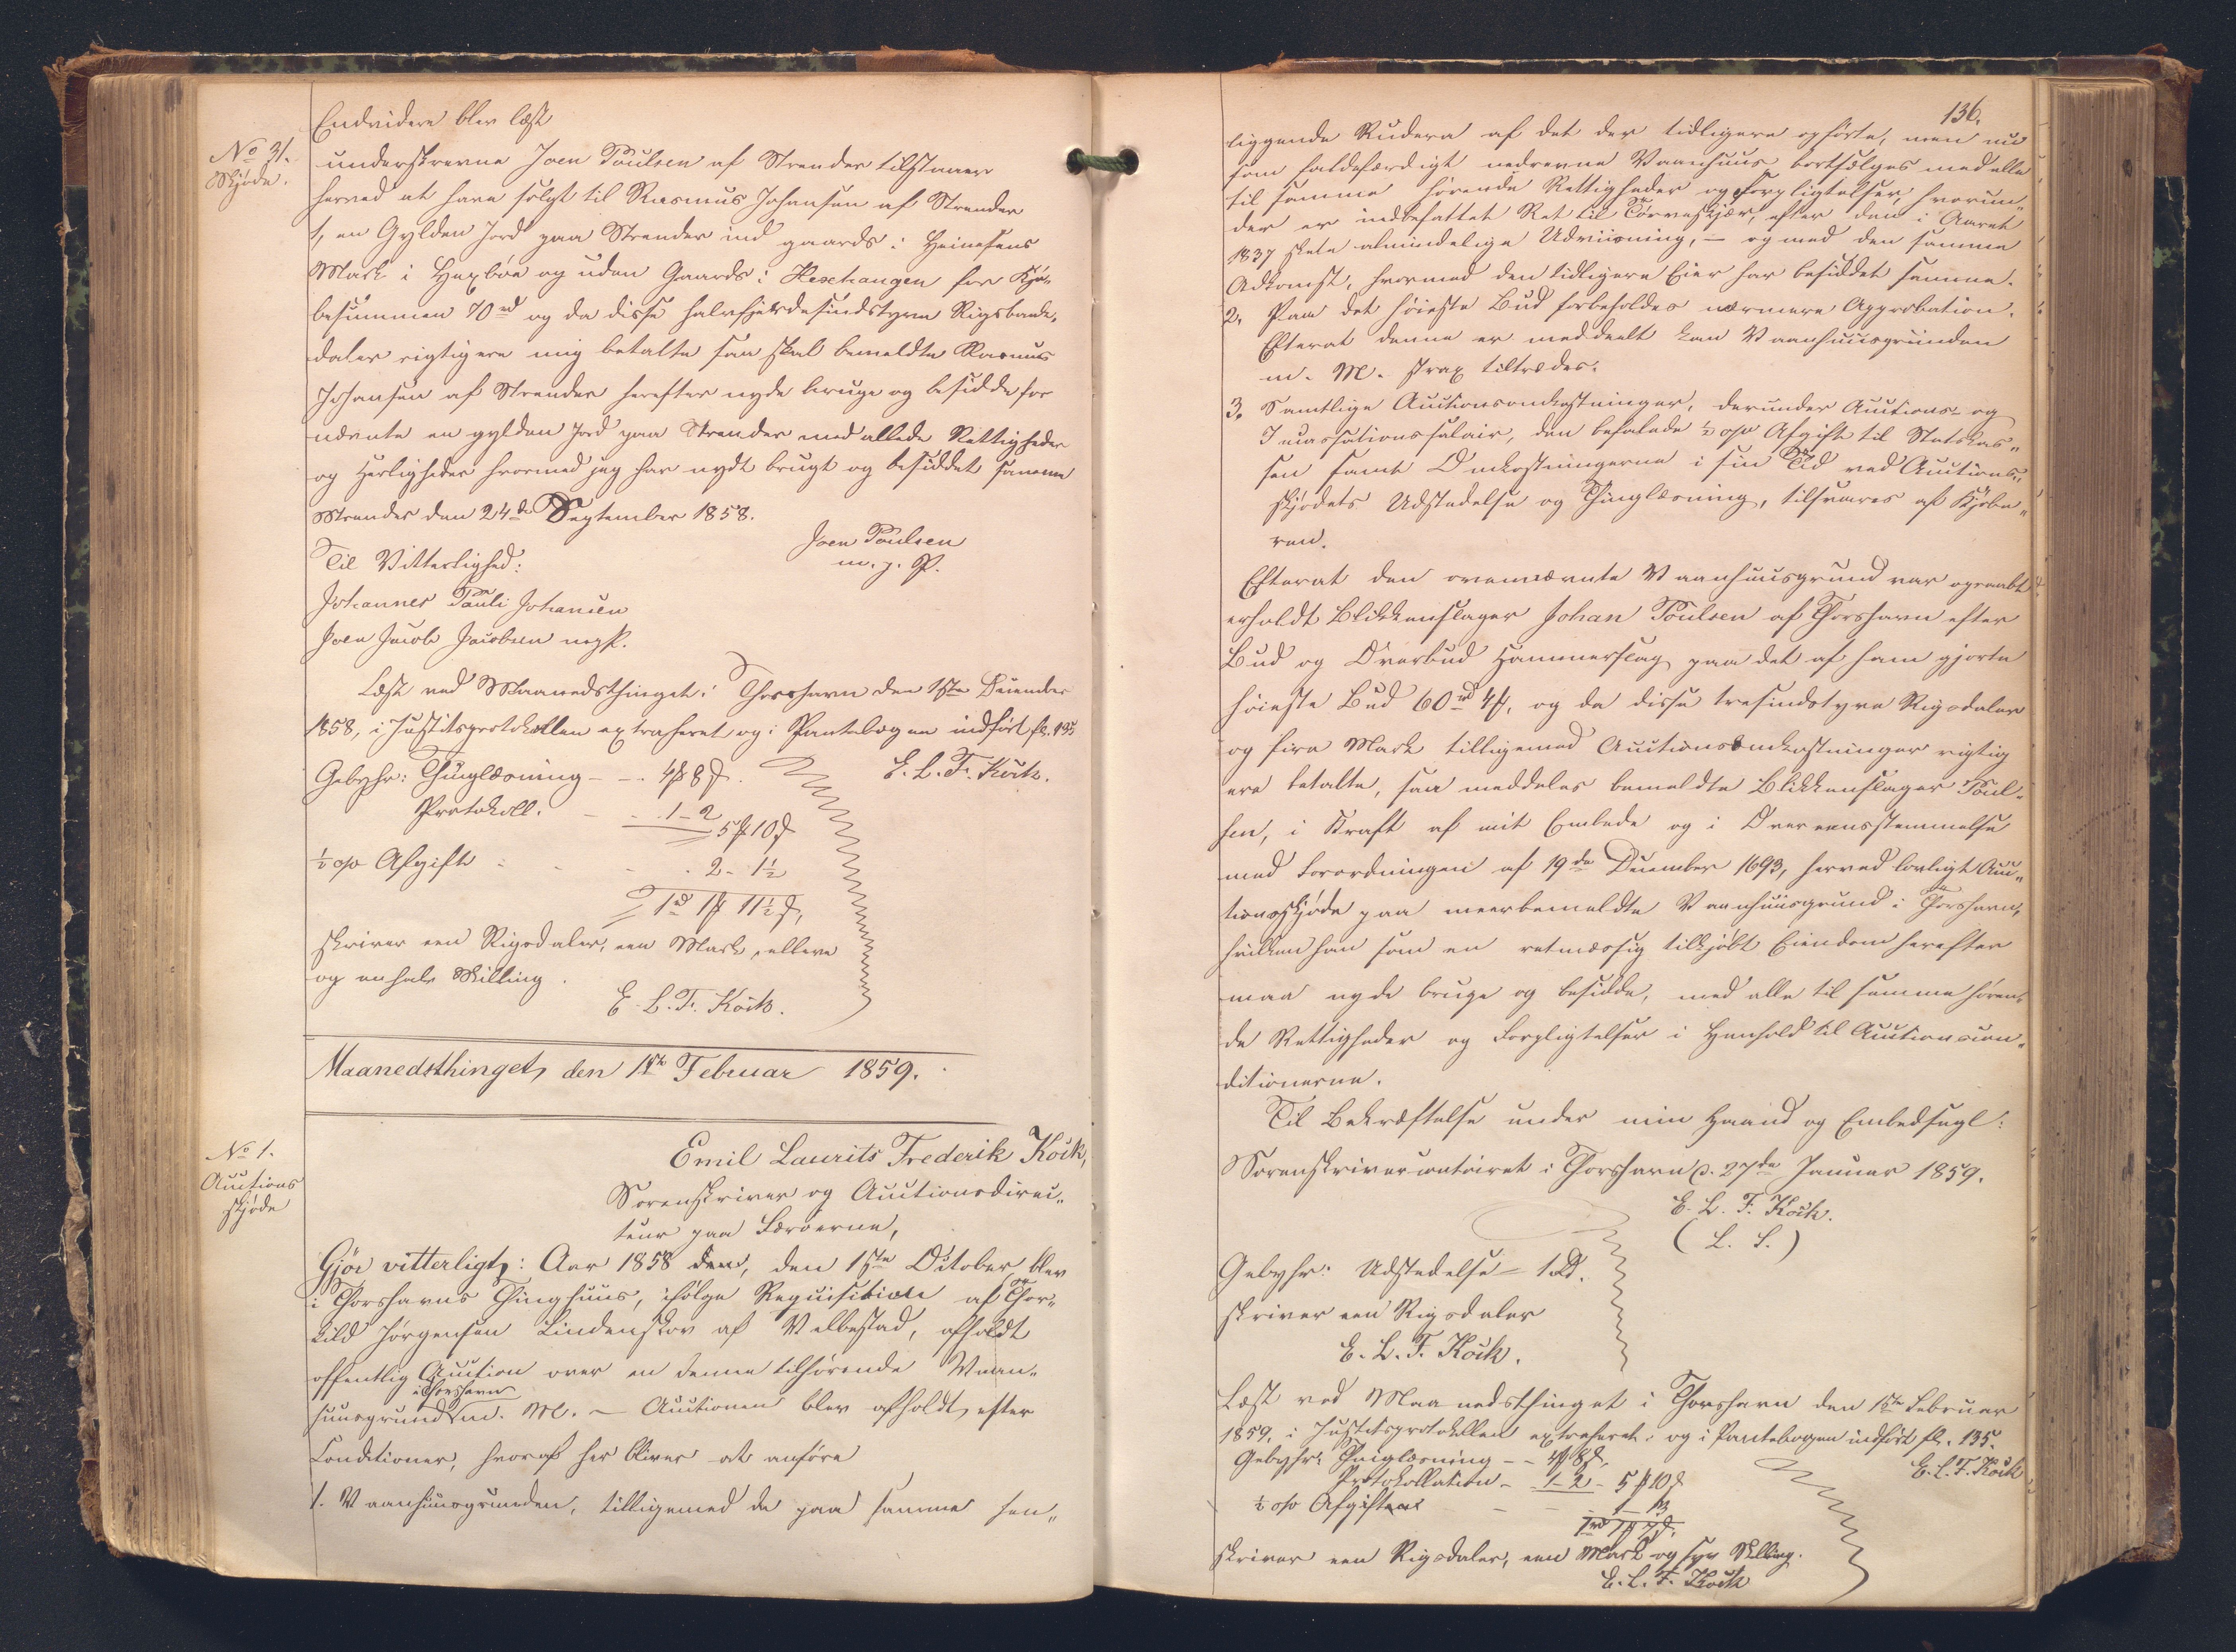 Endvidere blev læst
No 31.
Skjøde.
underskrevne Joen Poulsen af Strender tilstaaer
herved at have solgt til Rasmus Johansen af Strender
1, en Gylden Jord paa Strender ind gaards i Heinesens
Mark i og uden Gaards i for Kjø-
besummen 70 rd og da disse halvfjerdesindstyve Rigsbank-
daler rigtigere mig betalte saa skal bemeldte Rasmus
Johansen af Strender herefter nyde bruge og besidde for
nævnte en gylden Jord paa Strender med allede Rettigheder
og Herligheder hvormed jeg har nydt brugt og besiddet samme
Strender den 24de September 1858.
Joen Poulsen
m. p. P.
Til Vitterlighed:
Johannes Pauli Johansen
Joen Jacob Jacobsen
Læst ved Maanedsthinget i Thorshavn den 1ste December
1858, i Justitsprotokollen extraheret og i Pantebogen indført fl. 135
E. L. F. Kock.
Gebyhr: Thinglæsning - - 4 ß 8 ß.
Protokoll. - - 1 - 2
5 ß 10 ß
½ o/o Afgift - - - 2 - 1½
1 rd 1 ß 11½ ß,
skriver een Rigsdaler, een Mark, elleve
og en halv Skilling.
E. L. F. Kock.
Maanedsthinget, den 1ste Februar 1859.
No 1.
Auctions
skjøde
Emil Laurits Frederik Kock,
Sorenskriver og Auctionsdirec„
teur paa Færøerne,
Gjør vitterligt,: Aar 1858 den, den 1ste October blev
i Thorshavns Thinghuus, ifølge Requisition af Thor„
kild Jørgensen Lindenskov af Velbestad, afholdt
offentlig Auction over en denne tilhørende Vaan-
huusgrund i Thorshavn m. M. – Auctionen blev afholdt efter
Conditioner, hvoraf her bliver at anføre
1. Vaanhuusgrunden, tilligemed de paa samme hen„
136.
liggende Rudera af det der tidligere opførte, men nu
som faldefærdigt nedrevne Vaanhuus bortsælges med alle
til samme hørende Rettigheder og Forpligtelser, hvorun„
der er indbefattet Ret til Tørveskjær, efter den i Aaret
1837 skete almindelige Udviisning, – og med den samme
Adkomst, hvormed den tidligere Eier har besiddet samme.
2. Paa det høieste Bud forbeholdes nærmere Approbation.
Efterat denne er meddeelt kan Vaanhuusgrunden
m. M. strax tiltrædes.
3. Samtlige Auctionsomkostninger, derunder Auctions- og
Incassationssalair, den befalede ½ o/o Afgift til Statskas„
sen samt Omkostningerne i sin Tid ved Auctions„
skjødets Udstedelse og Thinglæsning, tilsvares af Kjøbe„
ren.
Efterat den ovennævnte Vaanhuusgrund var opraabt
erholdt Blikkenslager Johan Poulsen af Thorshavn efter
Bud og Overbud Hammerslag paa det af ham gjorte
høieste Bud 60 rd 4 ß, og da disse tresindstyve Rigsdaler
og fire Mark tilligemed Auctionsomkostninger rigtig
ere betalte, saa meddeles bemeldte Blikkenslager Poul-
sen, i Kraft af mit Embede og i Overeensstemmelse
med Forordningen af 19de December 1693, herved lovligt Auc„
tionsskjøde paa meerbemeldte Vaanhuusgrund i Thorshavn,
hvilken han som en retmæssig tilkjøbt Eiendom herefter
maa nyde bruge og besidde, med alle til samme høren-
de Rettigheder og Forpligtelser i Henhold til Auctionscon„
ditionerne.
Til Bekræftelse under min Haand og Embedsegl:
Sorenskrivercontoiret i Thorshavn d. 27de Januar 1859.
E. L. F. Kock.
(L. S.)
Gebyhr: Udstedelse – 1 rd.
skriver een Rigsdaler
E. L. F. Kock.
Læst ved Maanedsthinget i Thorshavn den 1ste Februar
1859, i Justitsprotokollen extraheret og i Pantebogen indført fl. 135.
E. L. F. Kock
Gebyhr: Thinglæsning - - 4 ß 8 ß,
Protokollation - 1 - 2 - 5 ß 10 ß
½ o/o Afgift - - - 1 - 13
1 rd 1 ß 7 ß.
skriver een Rigsdaler, een Mark og syv Skilling.
E. L. F. Kock